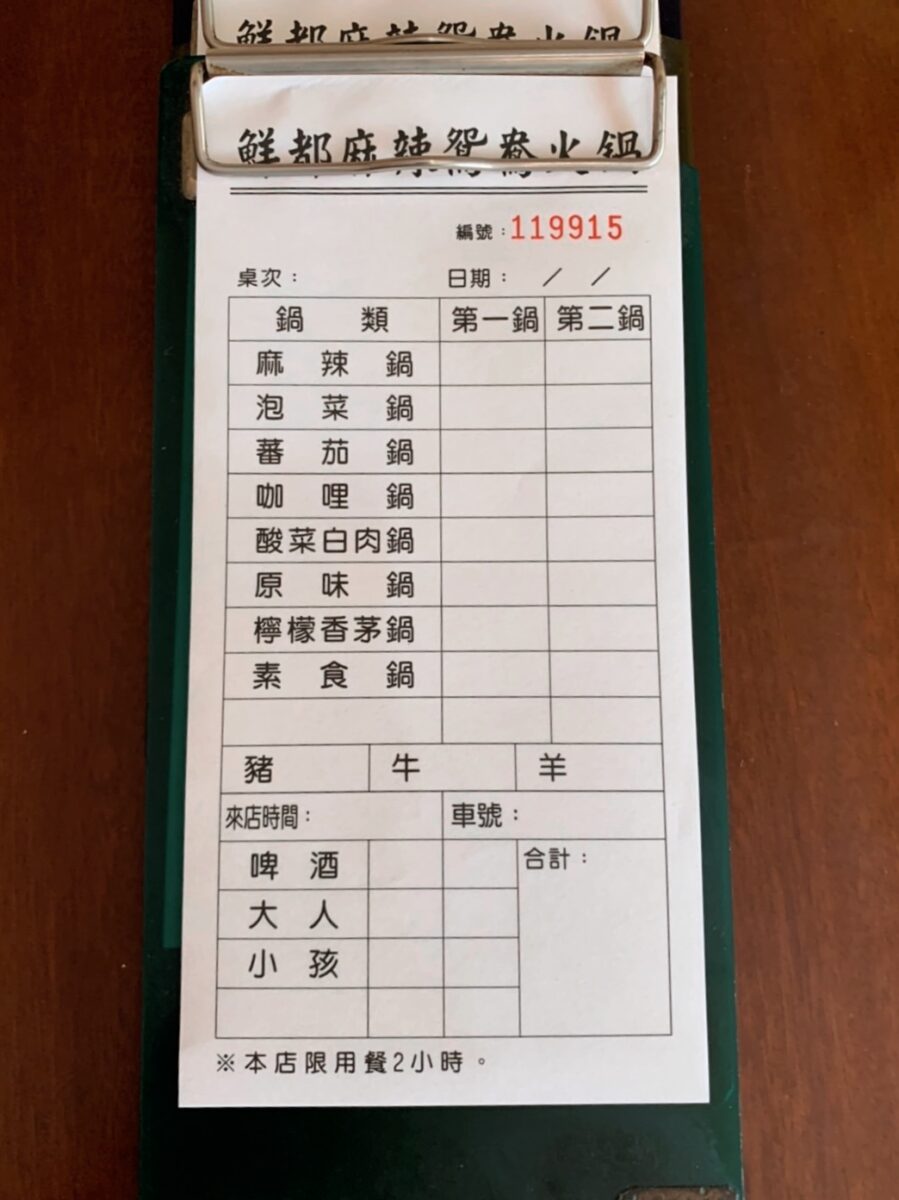 鮮都麻辣鴛鴦火鍋
鮮都麻辣鴛鴦火鍋
編號：119915
桌次： 日期： / /
鍋類 第一鍋 第二鍋
麻辣鍋
泡菜鍋
蕃茄鍋
咖哩鍋
酸菜白肉鍋
原味鍋
檸檬香茅鍋
素食鍋
豬 牛 羊
來店時間： 車號：
啤酒 合計：
大人
小孩
※本店限用餐2小時。